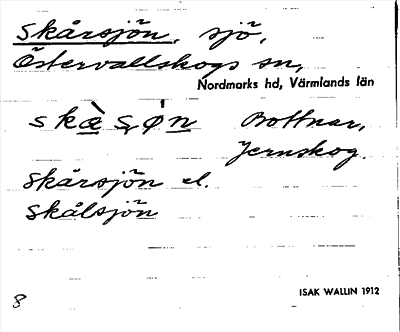 Skårsjön, sjö,
Östervallskogs sn,
Nordmarks hd, Värmlands län
skæ̀sǿn Bottnar,
Jernskog.
Skårsjön el.
Skålsjön
8 ISAK WALLIN 1912